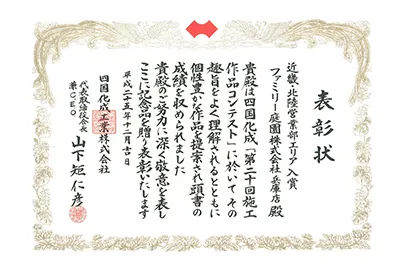 表彰状
近畿・北陸営業部エリア入賞
ファミリー庭園株式会社兵庫店 殿
貴殿は四国化成「第二十回施工
作品コンテスト」に於いてその
趣旨をよく理解されるとともに
個性豊かな作品を提案され頭書の
成績を収められました
貴殿のご努力に深く敬意を表し
ここに記念品を贈り表彰いたします
平成二十五年十二月十日
四国化成工業株式会社
代表取締役会長
兼CEO
山下矩仁彦